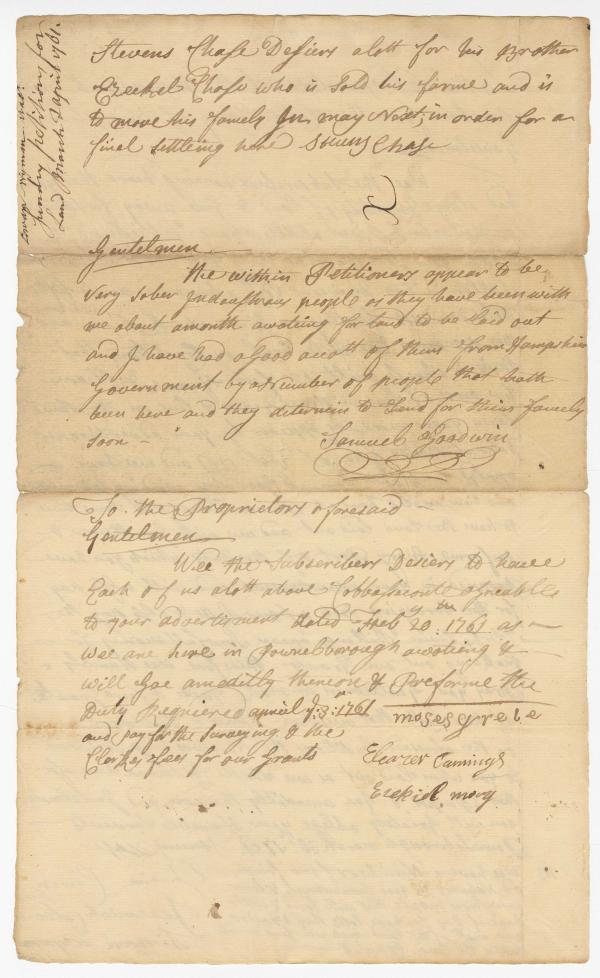 Stevens Chase Desiers alott for his Brother
Ezeekel Chase who is Sold his farme and is
to move his famely In may Next, in order for a
final settling here Stevens Chase
Gentelmen
the within Petitioners appear to be
very sober Indeustrous people as they have been with
me about amonth awating for land to be laid out
and I have had aGood acott of them from Hampshire
Government by aNumber of people that hath
been here and they determin to Send for their famely
soon - Samuel Goodwin
To the Proprietors aforesaid -
Gentelmen
Wee the Subscribers Desiers to have
Each of us alott above Cobbessconte aGreable
to your advertisment dated Feby 20th 1761 as
wee are here in Pownelborough awating &
will Goe ameditly thereon & Preforme the
Duty Requiered april ye 3: 1761
and pay for the surveying & the
Clerkes fees for our Grants
moses greele
Eleazer Cumings
Ezekiel mory
sundry petitions for
Land March & april 1761.